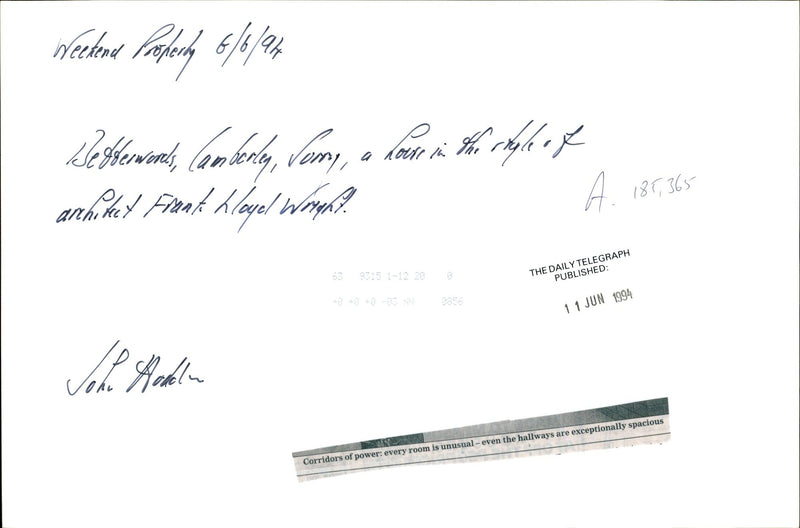 Weekend Property 6/6/94
Betterwords, Camberley, Surry, a house in the style of
architect Frank Lloyd Wright.
A. 185,365
63 9315 1-12 20 0
+0 +0 +0 -03 NN 0856
THE DAILY TELEGRAPH
PUBLISHED:
11 JUN 1994
John
Corridors of power: every room is unusual – even the hallways are exceptionally spacious